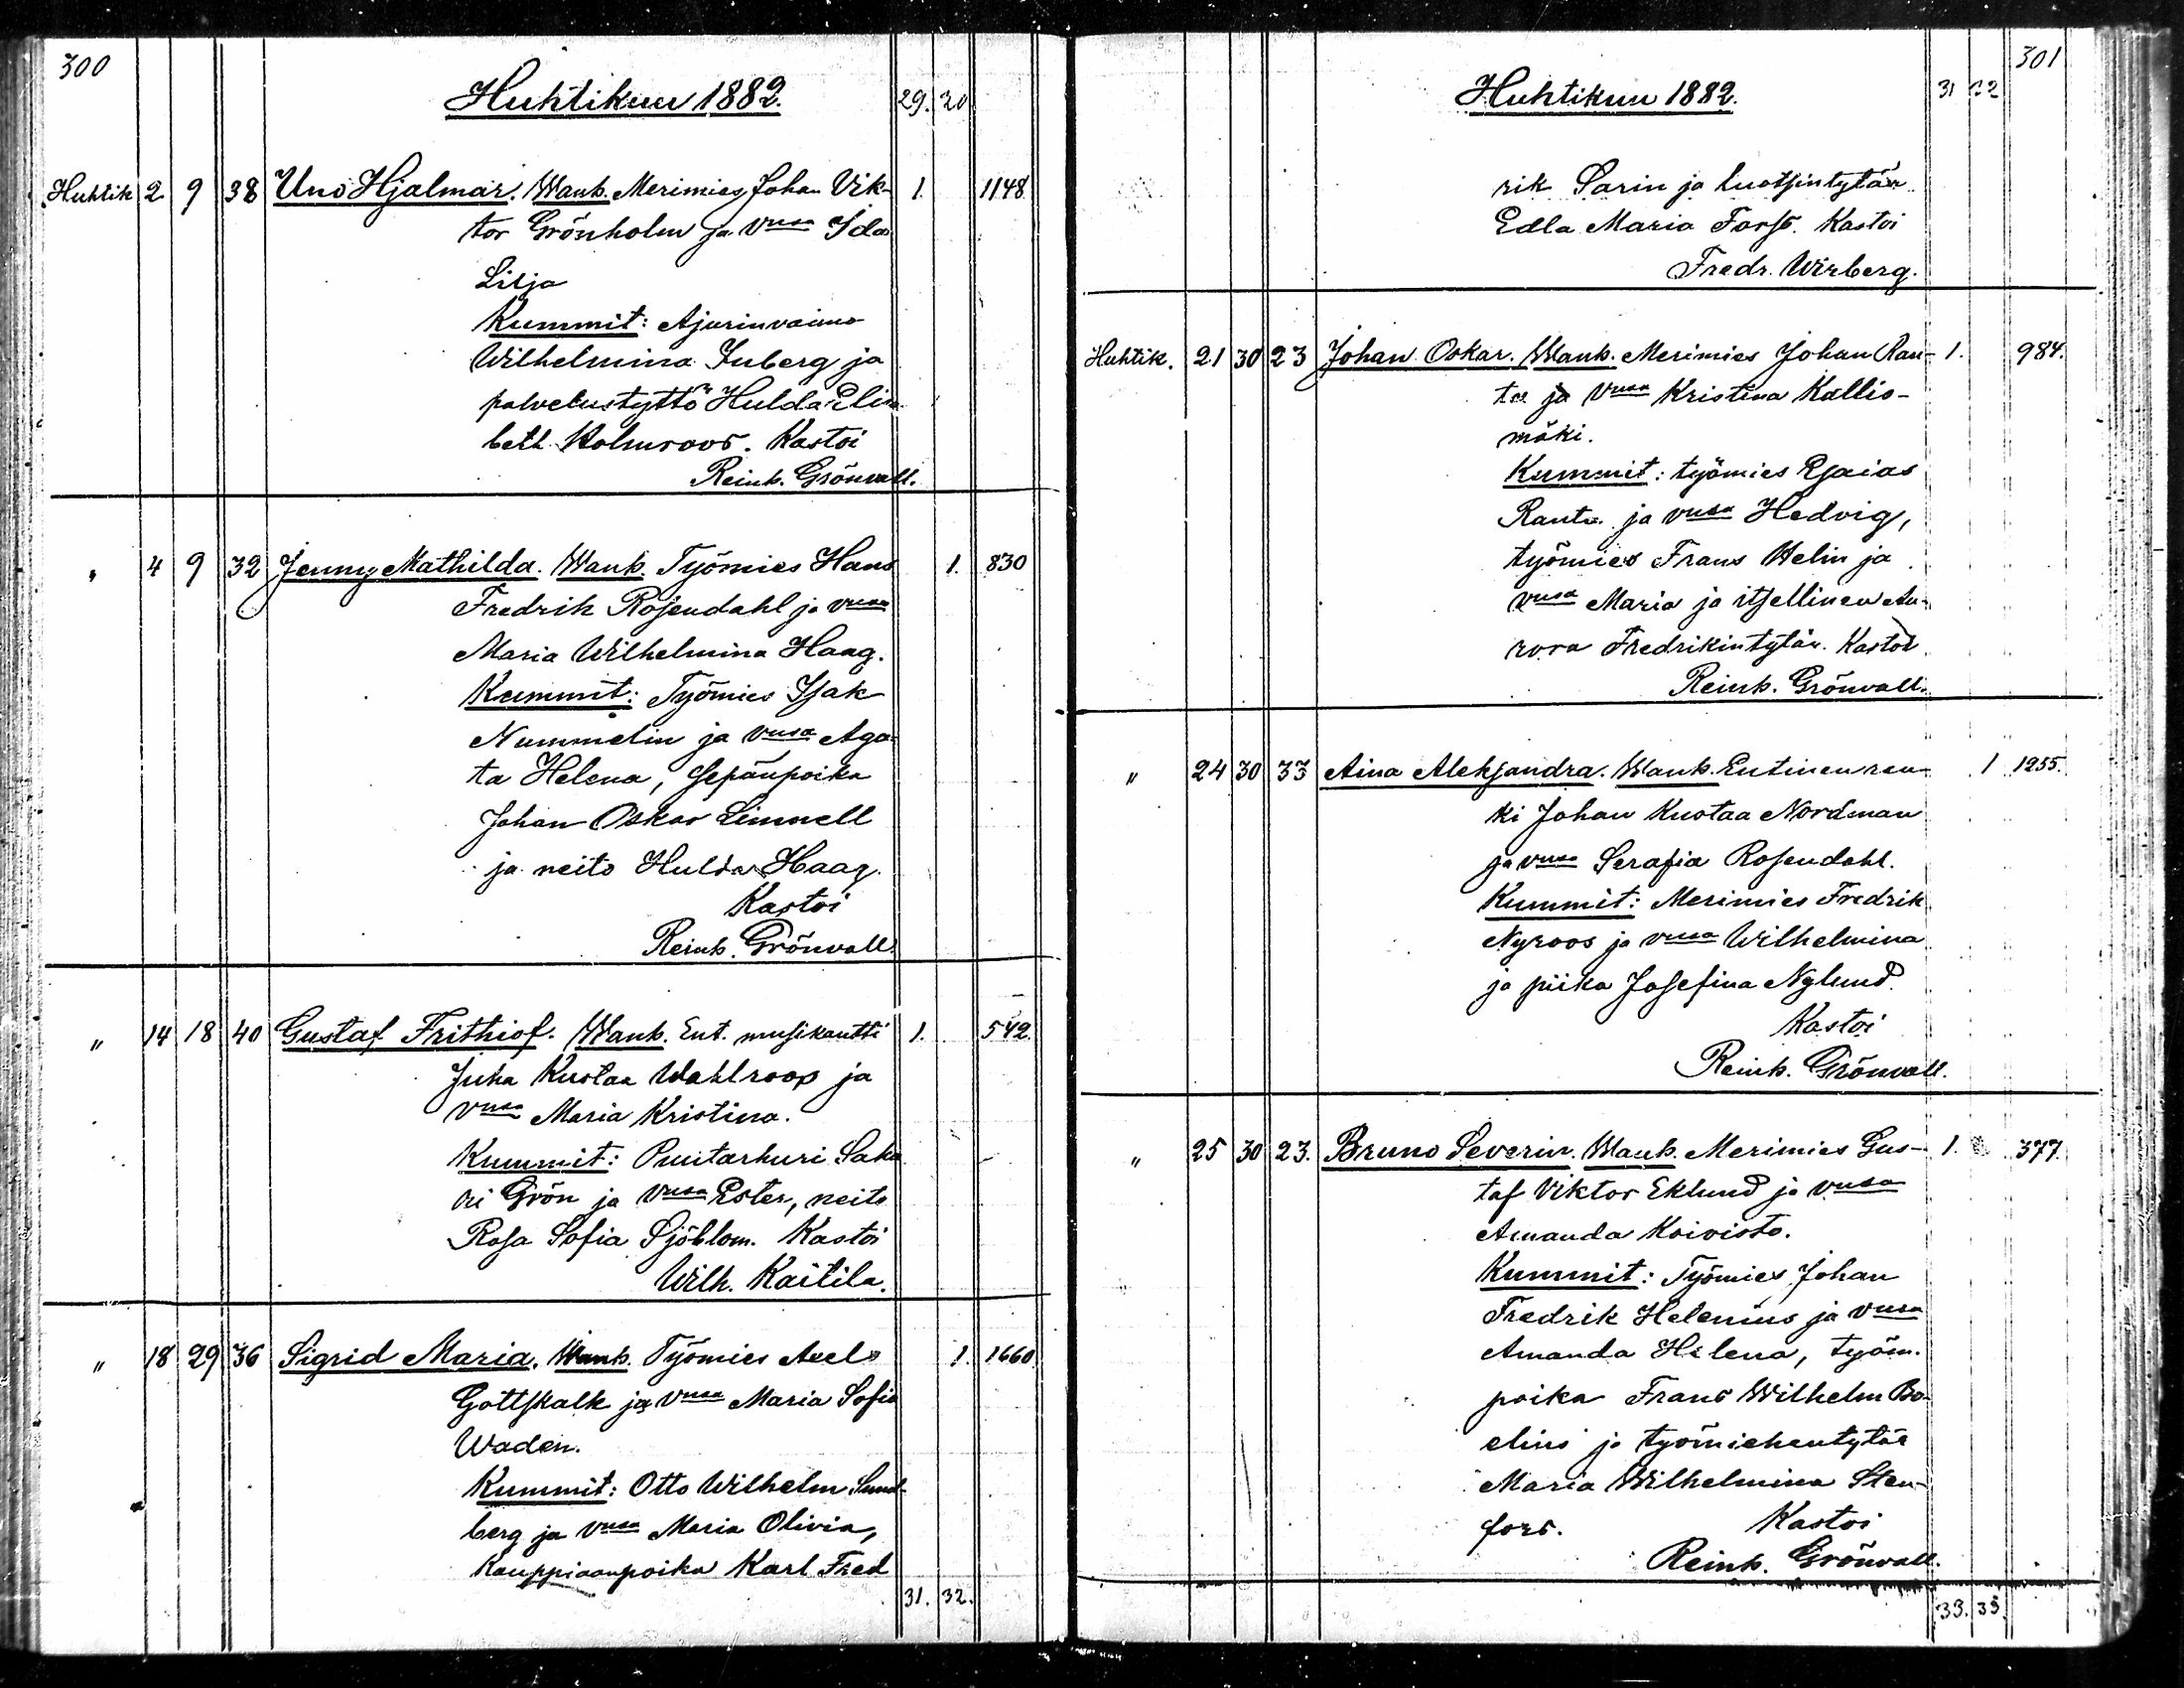 300
Huhtikuu 1882. 29. 30
Huhtik 2 9 38 Uno Hjalmar. Wanh. Merimies Johan Vik- 1. 1148
tor Grönholm ja vmsa Ida
Lilja
Kummit: Ajurinvaimo
Wilhelmina Inberg ja
palvelustyttö Hulda Elisa
beth Holmroos. Kastoi
Reinh. Grönvall.
" 4 9 32 Jenny Mathilda. Wanh. Työmies Hans 1. 830
Fredrik Rosendahl ja vmsa
Maria Wilhelmina Haag.
Kummit: Työmies Isak
Nummelin ja vmsa Aga-
ta Helena, sepänpoika
Johan Oskar Linnell
ja neito Hulda Haag.
Kastoi
Reinh. Grönvall.
" 14 18 40 Gustaf Frithiof. Wanh. Ent. musikantti 1. 542.
Juha Kustaa Wahlroos ja
vmsa Maria Kristina.
Kummit: Puutarhuri Saka
ri Grön ja vmsa Ester, neito
Rosa Sofia Sjöblom. Kastoi
Wilh. Kaitila.
" 18 29 36 Sigrid Maria. Wanh. Työmies Axel 1. 1660
Gottskalk ja vmsa Maria Sofia
Waden.
Kummit: Otto Wilhelm Sund-
berg ja vmsa Maria Olivia,
Kauppiaanpoika Karl Fred
31. 32.
301
Huhtikuu 1882. 31 32
rik Sarin ja luotsintytär
Edla Maria Forss. Kastoi
Fredr. Wirberg.
Huhtik. 21 30 23 Johan Oskar. Wanh. Merimies Johan Ran- 1. 984.
ta ja vmsa Kristina Kallio-
mäki.
Kummit: työmies Esaias
Ranta ja vmsa Hedvig,
työmies Frans Helin ja
vmsa Maria ja itsellinen Au-
rora Fredrikintytär. Kastoi
Reinh. Grönvall.
" 24 30 33 Aina Aleksandra. Wanh. Entinen ren- 1 1255.
ki Johan Kustaa Nordman
ja vmsa Serafia Rosendahl.
Kummit: Merimies Fredrik
Nyroos ja vmsa Wilhelmina
ja piika Josefina Nylund.
Kastoi
Reinh. Grönvall.
" 25 30 23. Bruno Severin. Wanh. Merimies Gus- 1. 377.
taf Viktor Eklund ja vmsa
Amanda Koivisto.
Kummit: Työmies Johan
Fredrik Helenius ja vmsa
Amanda Helena, työm.
poika Frans Wilhelm Bo-
elius ja työmiehentytär
Maria Wilhelmina Sten-
fors. Kastoi
Reinh. Grönvall.
33. 33.